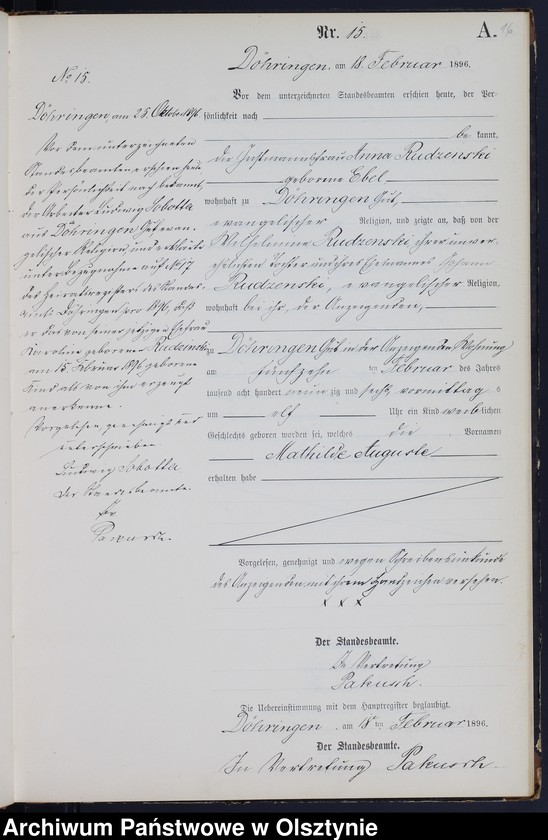 Nr. 15.
A.
Döhringen, am 18. Februar 1896.
Vor dem unterzeichneten Standesbeamten erschien heute, der Per-
sönlichkeit nach
be kannt,
die Instmannsfrau Anna Rudzenski
geborene Ebel
wohnhaft zu Döhringen Gut,
evangelischer Religion, und zeigte an, daß von der
Wilhelmine Rudzenski ihrer unver-
ehelichten Tochter und ihres Ehemannes Johann
Rudzenski, evangelischer Religion,
wohnhaft bei ihr, der Anzeigenden,
zu Döhringen Gut in der Anzeigenden Wohnung
am fünfzehn ten Februar des Jahres
tausend acht hundert neun zig und sechs vormittag s
um elf Uhr ein Kind weib lichen
Geschlechts geboren worden sei, welches die Vornamen
Mathilde Auguste
erhalten habe
Vorgelesen, genehmigt und wegen Schreibensunkunde
der Anzeigenden mit ihrem Handzeichen versehen.
x x x
Der Standesbeamte.
In Vertretung
Pakusch.
Die Uebereinstimmung mit dem Hauptregister beglaubigt.
Döhringen, am 18 ten Februar 1896.
Der Standesbeamte.
In Vertretung Pakusch.
No 15.
Döhringen, am 25. Oktober 1896
Vor dem unterzeichneten
Standesbeamten erschien heute,
der Persönlichkeit nach bekannt,
der Arbeiter Ludwig Sobotta
aus Döhringen Gut evan-
gelischer Religion und erklärte
unter Bezugnahme auf No 17
des Heiratsregisters des Standes-
amts Döhringen pro 1896, daß
er das von seiner jetzigen Ehefrau
geborener Rudzinski
am 15. Februar 1896 geborene
Kind als von ihm erzeugt
anerkenne.
Vorgelesen, genehmigt und
unterschrieben
Ludwig Sobotta
Der Standesbeamte.
Pakusch.
Archiwum Państwowe w Olsztynie